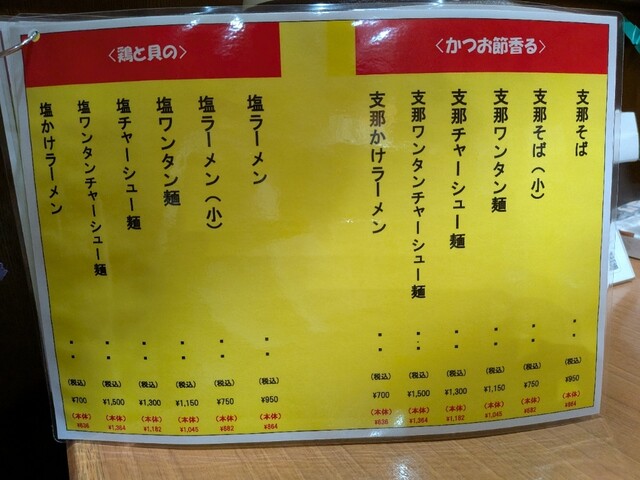 〈かつお節香る〉
支那そば・・(税込)¥950(本体)¥864
支那そば(小)・・(税込)¥750(本体)¥682
支那ワンタン麺・・(税込)¥1,150(本体)¥1,045
支那チャーシュー麺・・(税込)¥1,300(本体)¥1,182
支那ワンタンチャーシュー麺・・(税込)¥1,500(本体)¥1,364
支那かけラーメン・・(税込)¥700(本体)¥636
〈鶏と貝の〉
塩ラーメン・・(税込)¥950(本体)¥864
塩ラーメン(小)・・(税込)¥750(本体)¥682
塩ワンタン麺・・(税込)¥1,150(本体)¥1,045
塩チャーシュー麺・・(税込)¥1,300(本体)¥1,182
塩ワンタンチャーシュー麺・・(税込)¥1,500(本体)¥1,364
塩かけラーメン・・(税込)¥700(本体)¥636